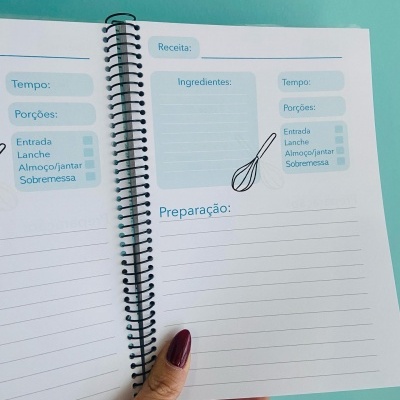 Tempo:
Porções:
Entrada
Lanche
Almoço/jantar
Sobremessa
Receita:
Ingredientes:
Tempo:
Porções:
Entrada
Lanche
Almoço/jantar
Sobremessa
Preparação: